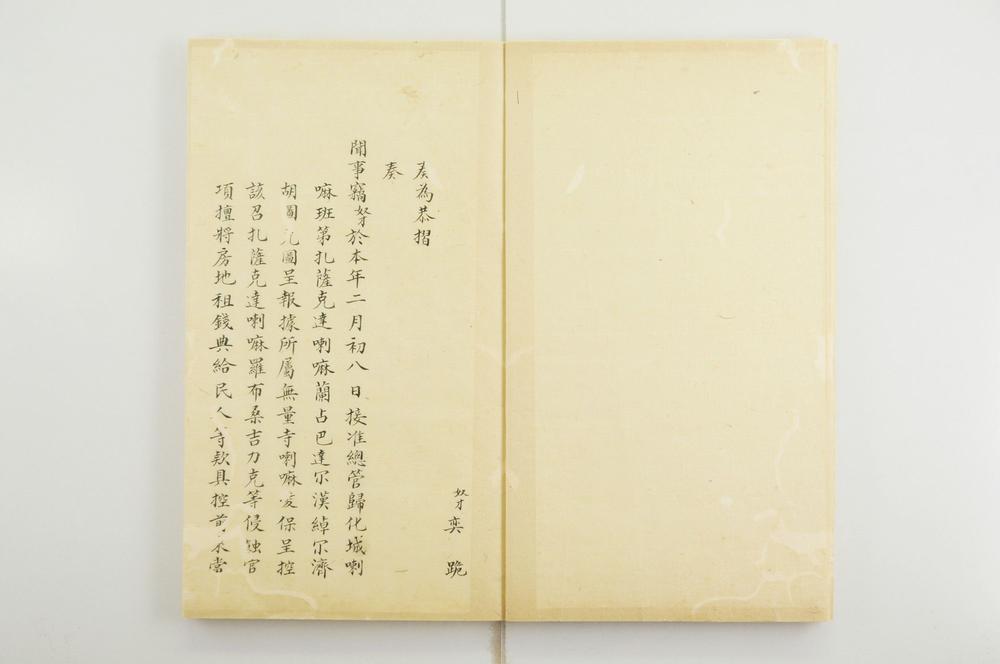 奴才奕 跪
奏為恭摺
奏
聞事竊奴才於本年二月初八日接准總管歸化城喇
嘛班第扎薩克達喇嘛蘭占巴達尔漢綽尔濟
胡圖克圖呈報據所屬無量寺喇嘛凌保呈控
該召扎薩克達喇嘛羅布桑吉力克等侵蝕官
項擅將房地租錢典給民人等款具控前來當